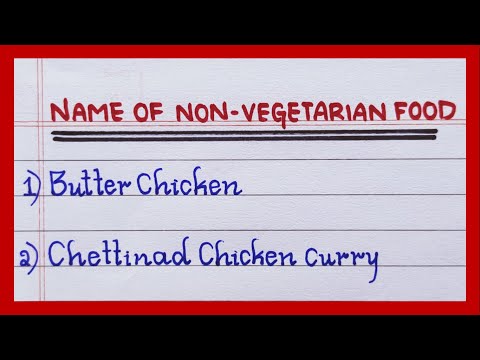 NAME OF NON-VEGETARIAN FOOD
1) Butter Chicken
2) Chettinad Chicken Curry